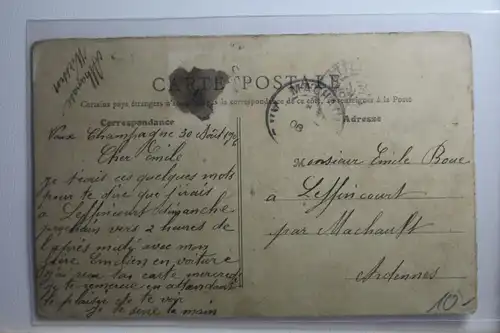 CARTE POSTALE
Certains pays étrangers
la correspondance de ce côté, se renseigner à la Poste
Correspondance
Adresse
Vaux Champagne 30 Août
Cher Emile
Je t'écrit ces quelques mots
pour te dire que j'irais
à Leffincourt dimanche
prochain vers 2 heures de
l'après midi avec mon
frère Emilien en voiture
J'ai reçu ta carte mercredi
je te remercie en attendant
le plaisir de te voir
je te serre la main
Monsieur Emile
à Leffincourt
par Machault
Ardennes
10.-